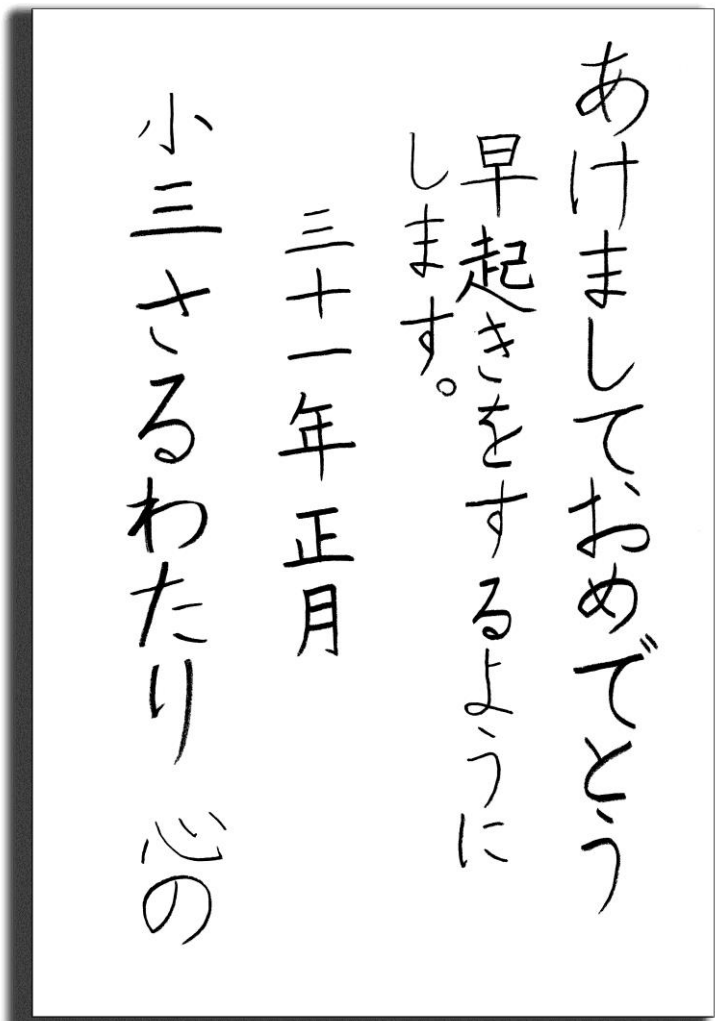 あけましておめでとう
早起きをするように
します。
三十一年正月
小三さるわたり 心の